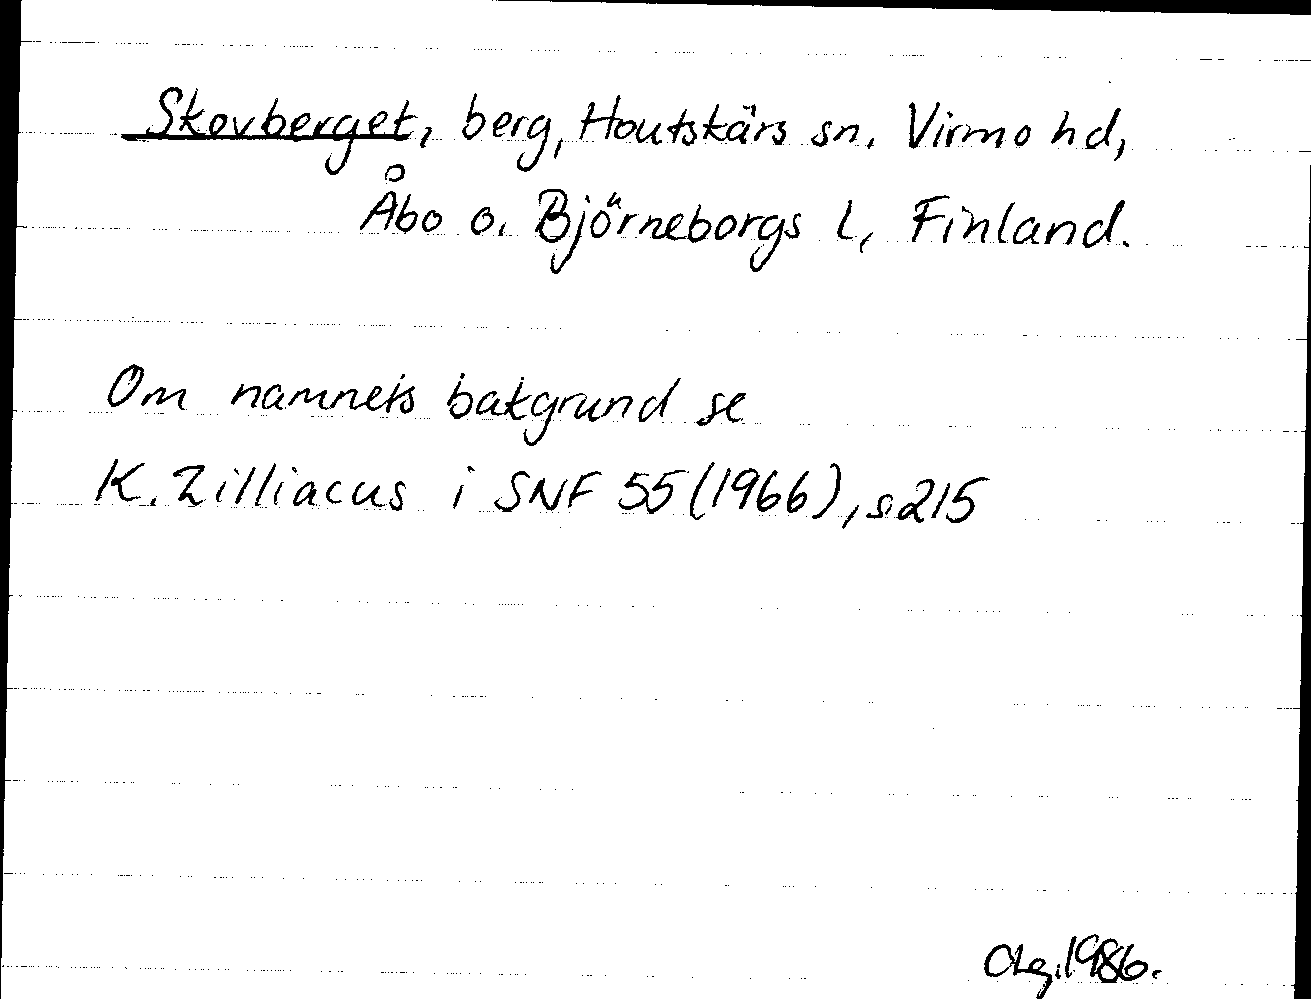 Skovberget, berg, Houtskärs sn. Virmo hd,
Åbo o. Björneborgs l, Finland.
Om namnets bakgrund se
K. Zilliacus i SNF 55 (1966), s 215
1986.